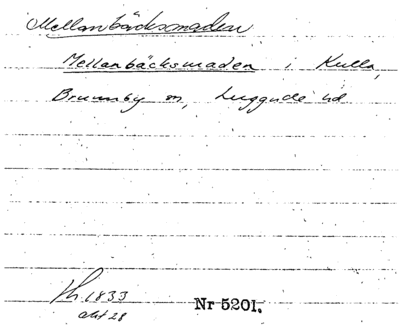 Mellanbäcksmaden
Mellanbäcksmaden i Kulla,
Brunnby sn, Luggude hd
Th. 1833
akt 28
Nr 5201.